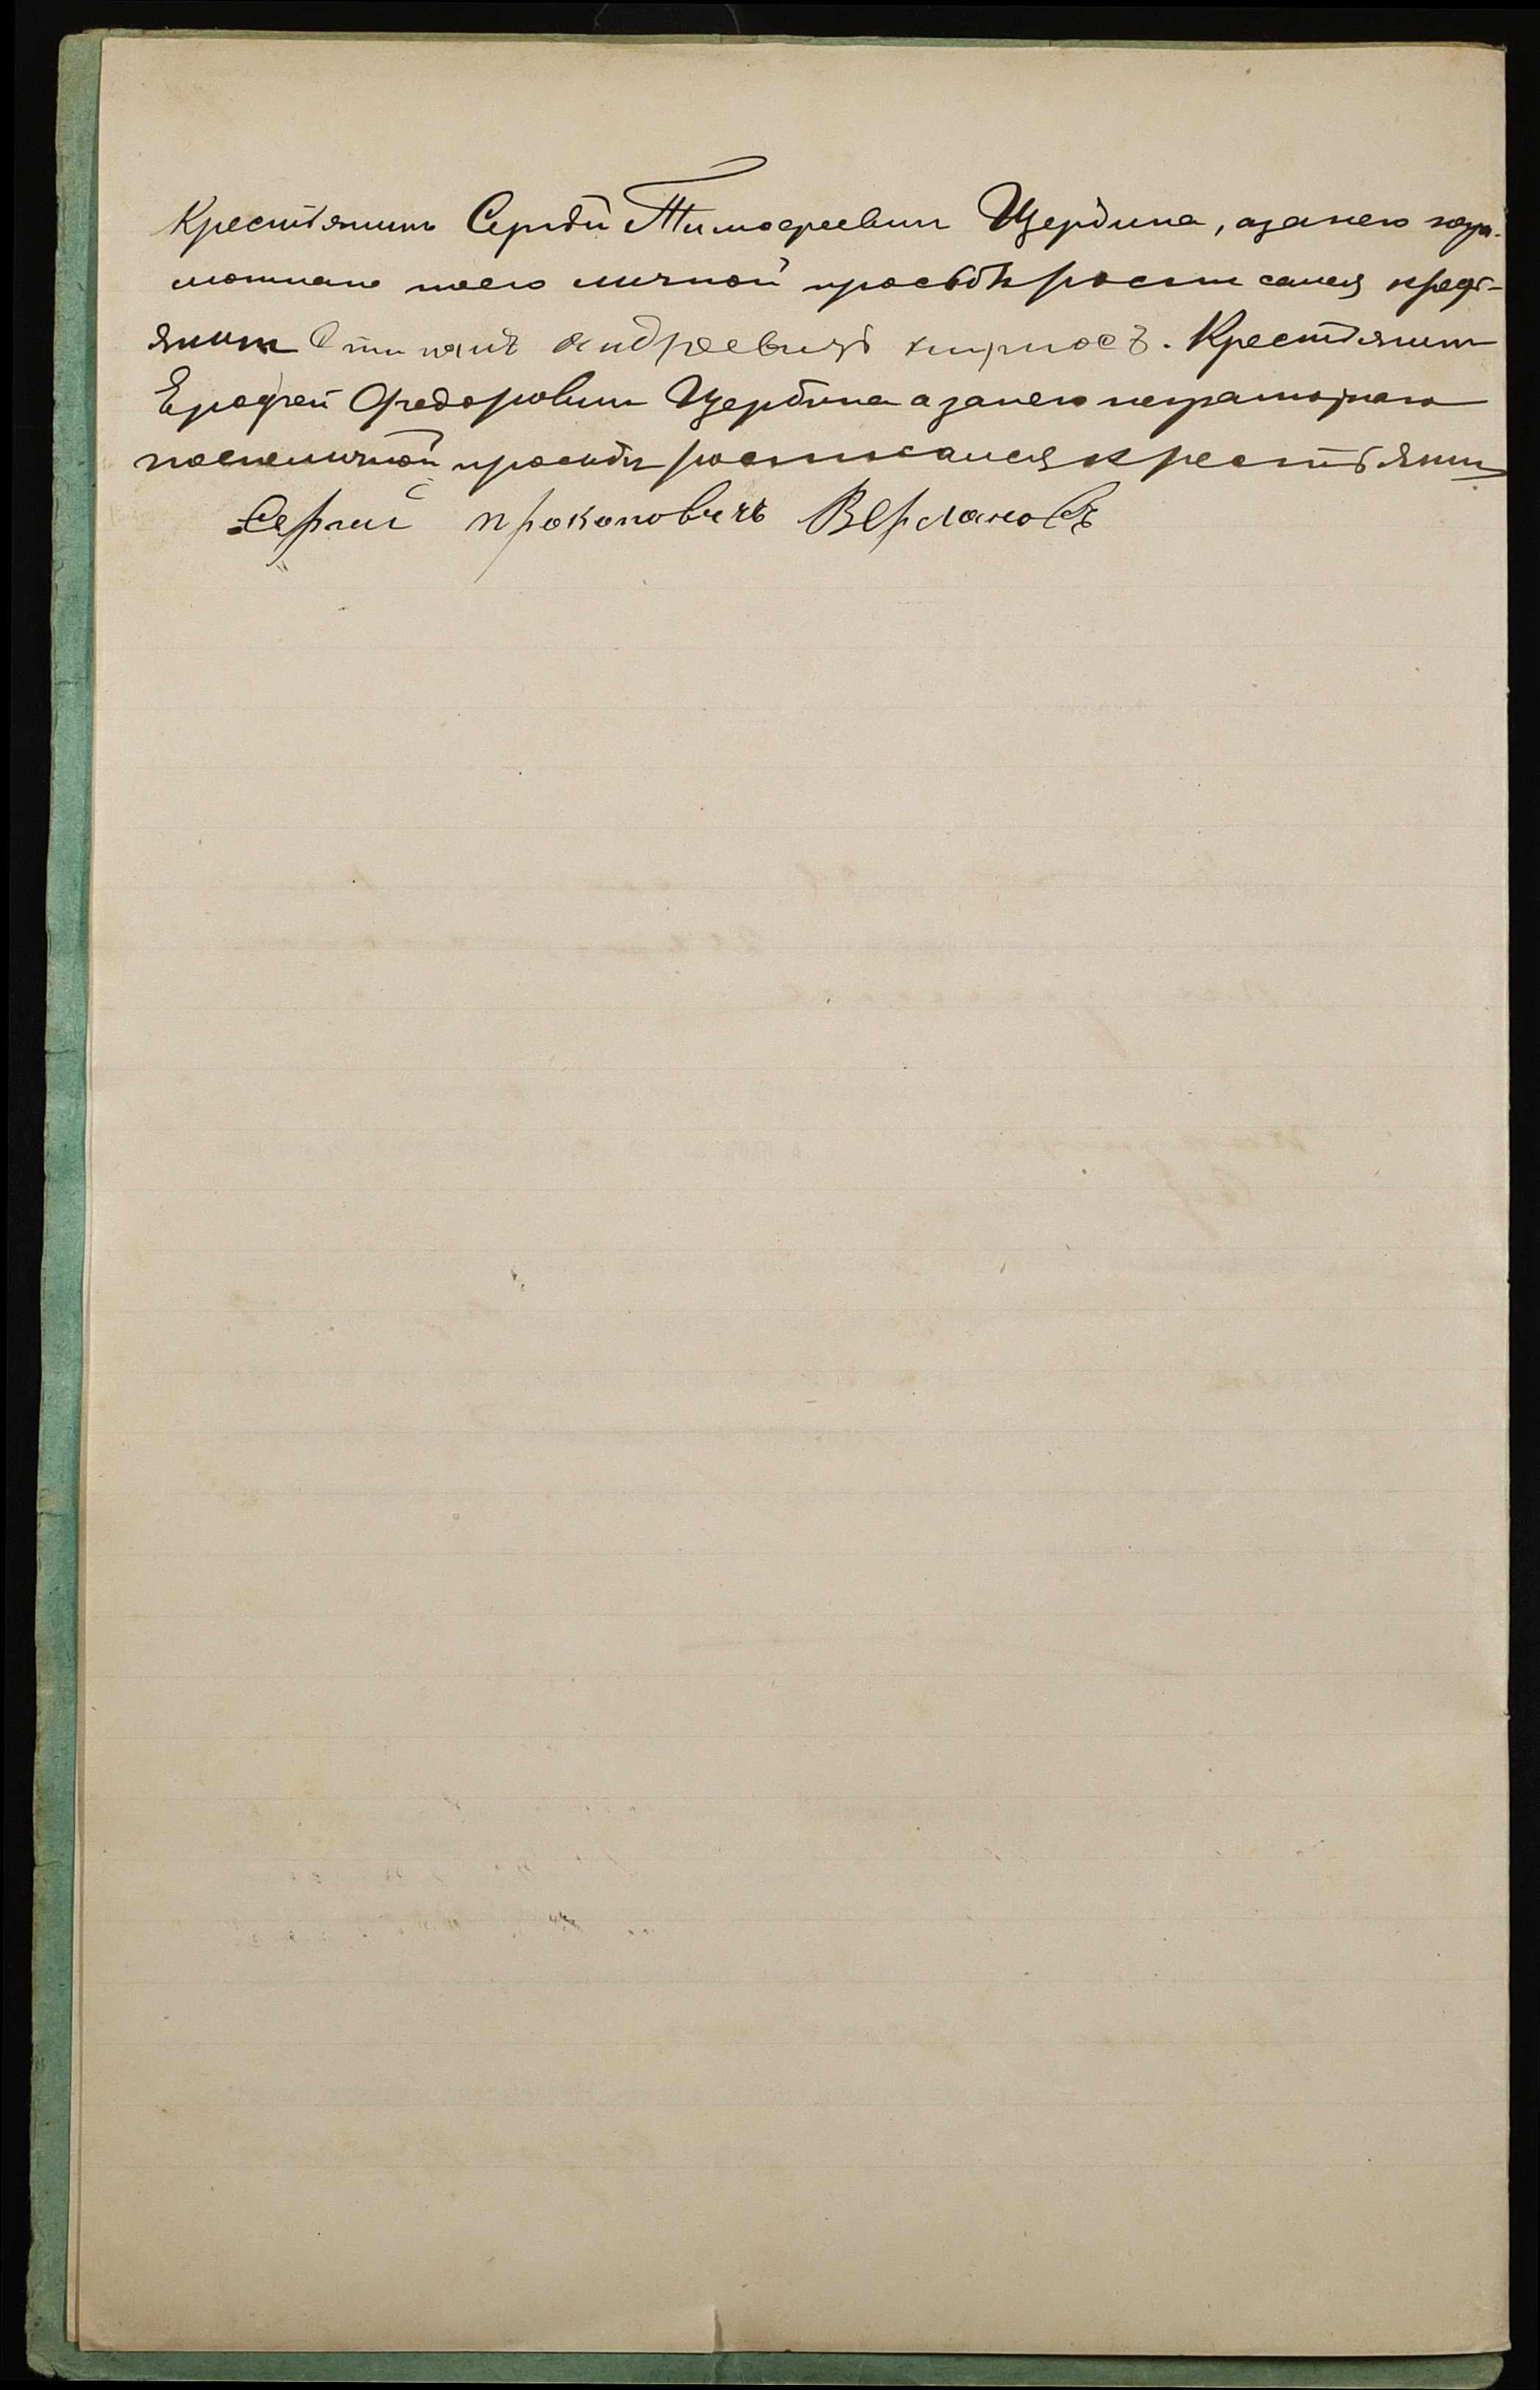 Крестьянинъ Сергѣй Тимофеевичъ Щербина, а за него негра-
мотнаго по его личной просьбѣ росписался кресть-
янинъ Стипанъ андреевичъ кирносъ. Крестьянинъ
Ерофей Федоровичъ Щербина а за него неграмотнаго
по его личной просьбѣ росписался крестьянинъ
Сергий прокоповичъ